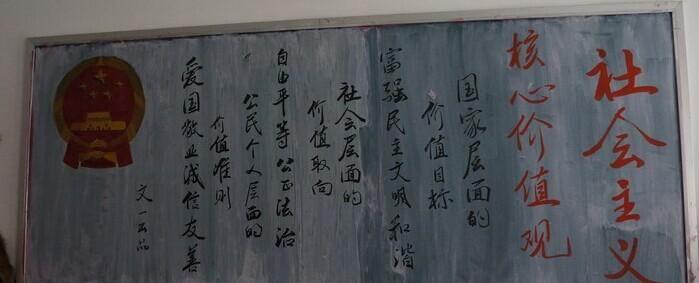 社会主义
核心价值观
国家层面的
价值目标
富强民主文明和谐
社会层面的
价值取向
自由平等公正法治
公民个人层面的
价值准则
爱国敬业诚信友善